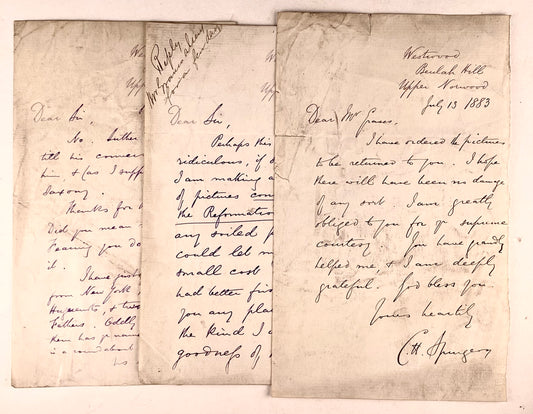 Dear Sir,
No. Luther
till his conver
him, & (as I supp
Saxony.
Thanks for
Did you mean
Fearing you do
it.
I have
from New York
Huguenots, &
Fathers. Oddly
them has
is a roundabout
his
Reply
Dear Sir,
Perhaps this
ridiculous, if
I am making a
of pictures con
the Reformatio
any soiled p
could let m
small cost
had better firs
you any pla
the kind I
goodness of
Westwood
Beulah Hill
Upper Norwood
July 13 1883
Dear Mr Graves,
I have ordered the pictures
to be returned to you. I hope
there will have been no damage
of any sort. I am greatly
obliged to you for yr supreme
courtesy. You have greatly
helped me, & I am deeply
grateful. God bless you.
Yours heartily
C. H. Spurgeon